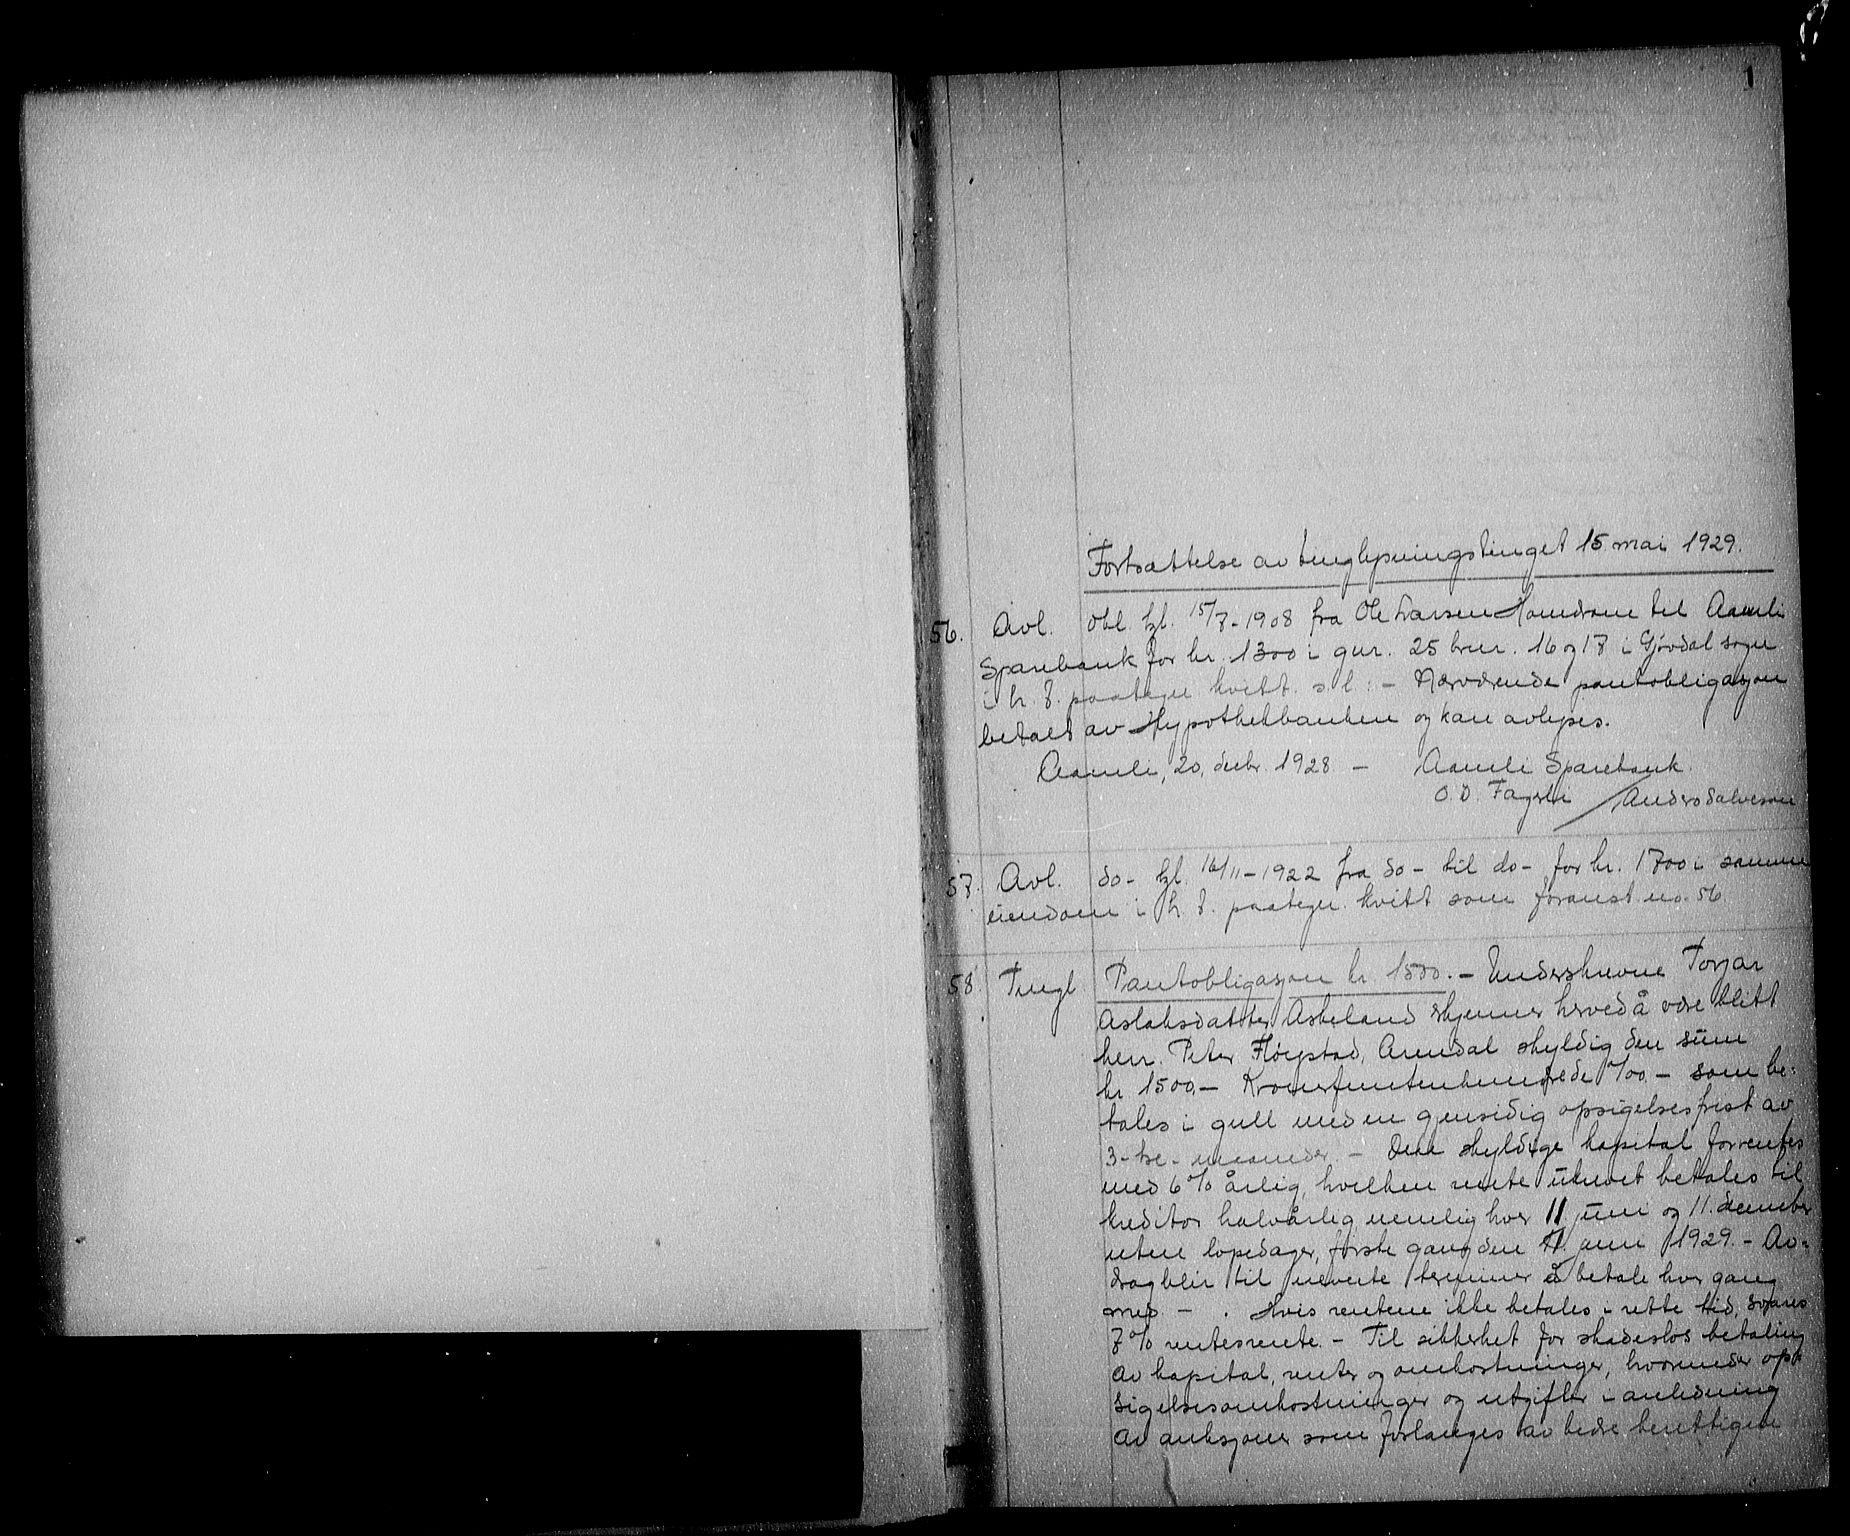 1
Fortsættelse av tinglysningstinget 15 mai 1929.
56. Avl. Obl. tgl. 15/7-1908 fra Ole Larsen Homdrom til Aamli
Sparebank for kr. 1300 i gnr. 25 brnr. 16 og 17 i Gjøvdal sogn
i h. t. paategn kvitt. s. l: - Nærværende pantobligasjon
betalt av Hypothekbanken og kan avlyses.
Aamli, 20, decbr. 1928 - Aamli Sparebank.
O. D. Fagerli / Anders Salveson
57. Avl. do- tgl. 16/11-1922 fra do- til do- for kr. 1700 i samme
eiendom i h. t. paategn. kvitt som foranst. no. 56
58. Tingl Pantobligasjon kr. 1500. - Underskrevne Torjar
Aslaksdatter Askeland erkjenner herved å være blitt
herr. Peter Fløistad, Arendal skyldig den sum
kr 1500,- Kronerfemtenhundrede %00 - som be-
tales i gull med en gjensidig opsigelsesfrist av
3-tre-maaneder. - Den skyldige kapital forrentes
med 6% årlig, hvilken rente ukrævet betales til
kreditor halvårlig nemlig hver 11 juni og 11. december
uten løpedager, første gang den 11. juni 1929. - Av-
drag blir til nevnte terminer å betale hver gang
med - . Hvis rentene ikke betales i rette tid, svares
7% rentesrente. - Til sikkerhet for skadesløs betaling
av kapital, renter og omkostninger, hvorunder op-
sigelsesomkostninger og utgifter i anledning
av auksjoner som forlanges av bedre berettigede